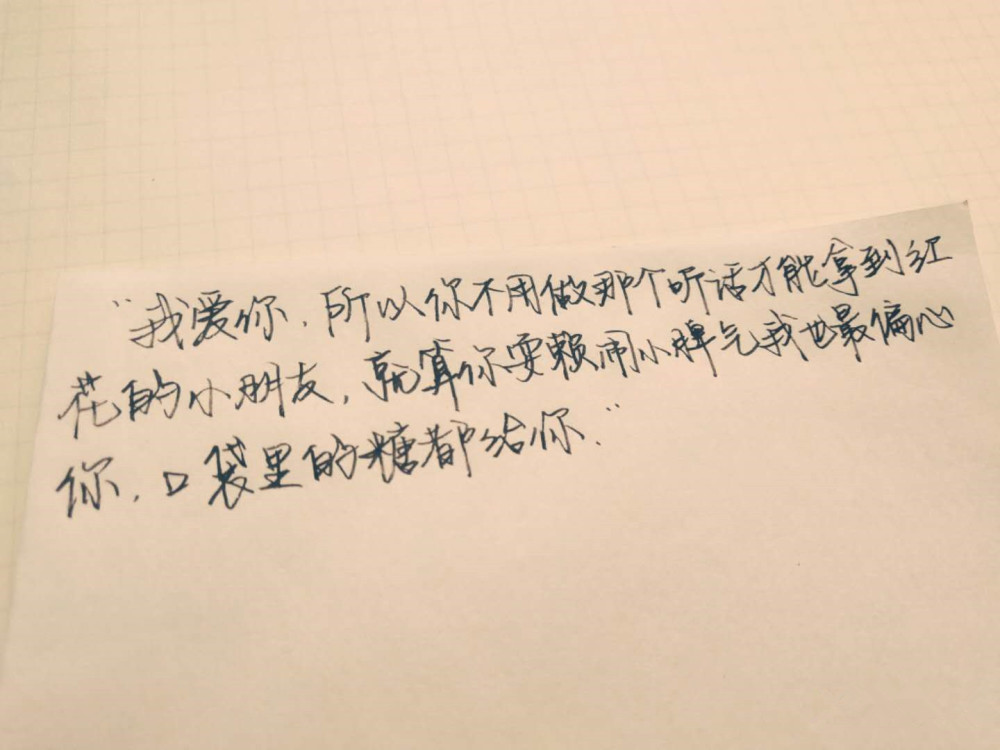 “我爱你，所以你不用做那个听话才能拿到红
花的小朋友，就算你耍赖闹小脾气我也最偏心
你，口袋里的糖都给你.”